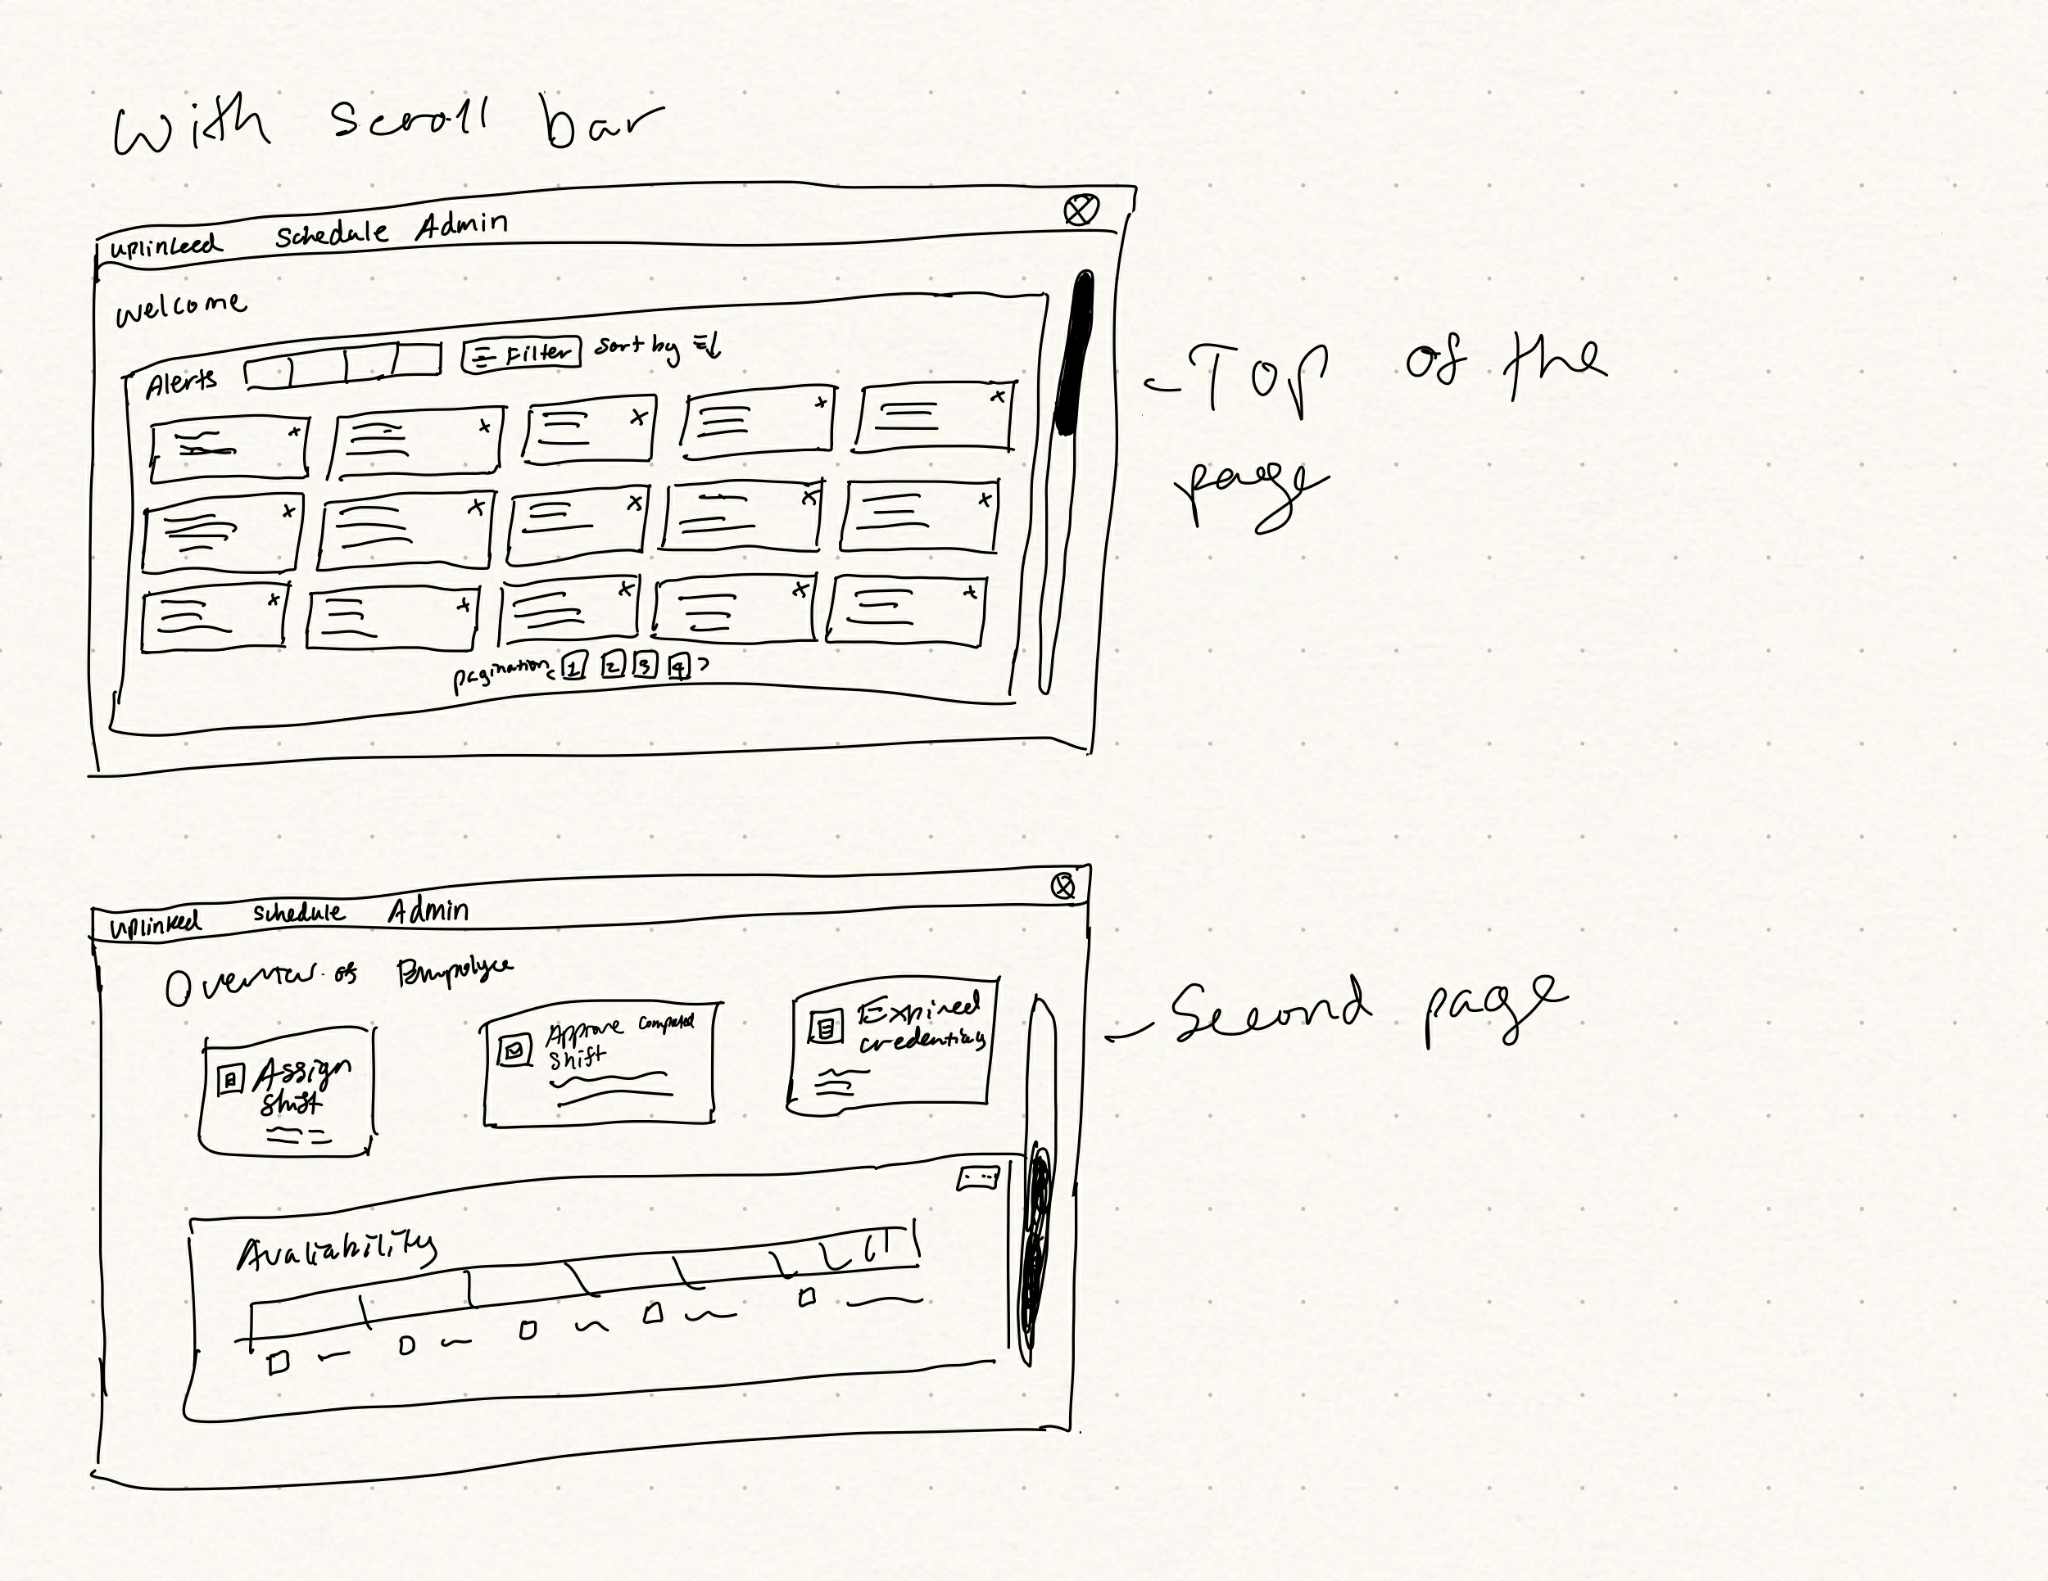 With scroll bar
uplinked Schedule Admin
Welcome
Alerts Filter Sort by
pagination < 1 2 3 4 >
- Top of the
page
uplinked Schedule Admin
Overview of
Assign
Shift
Approve Completed
Shift
Expired
- Second page
Avaliability